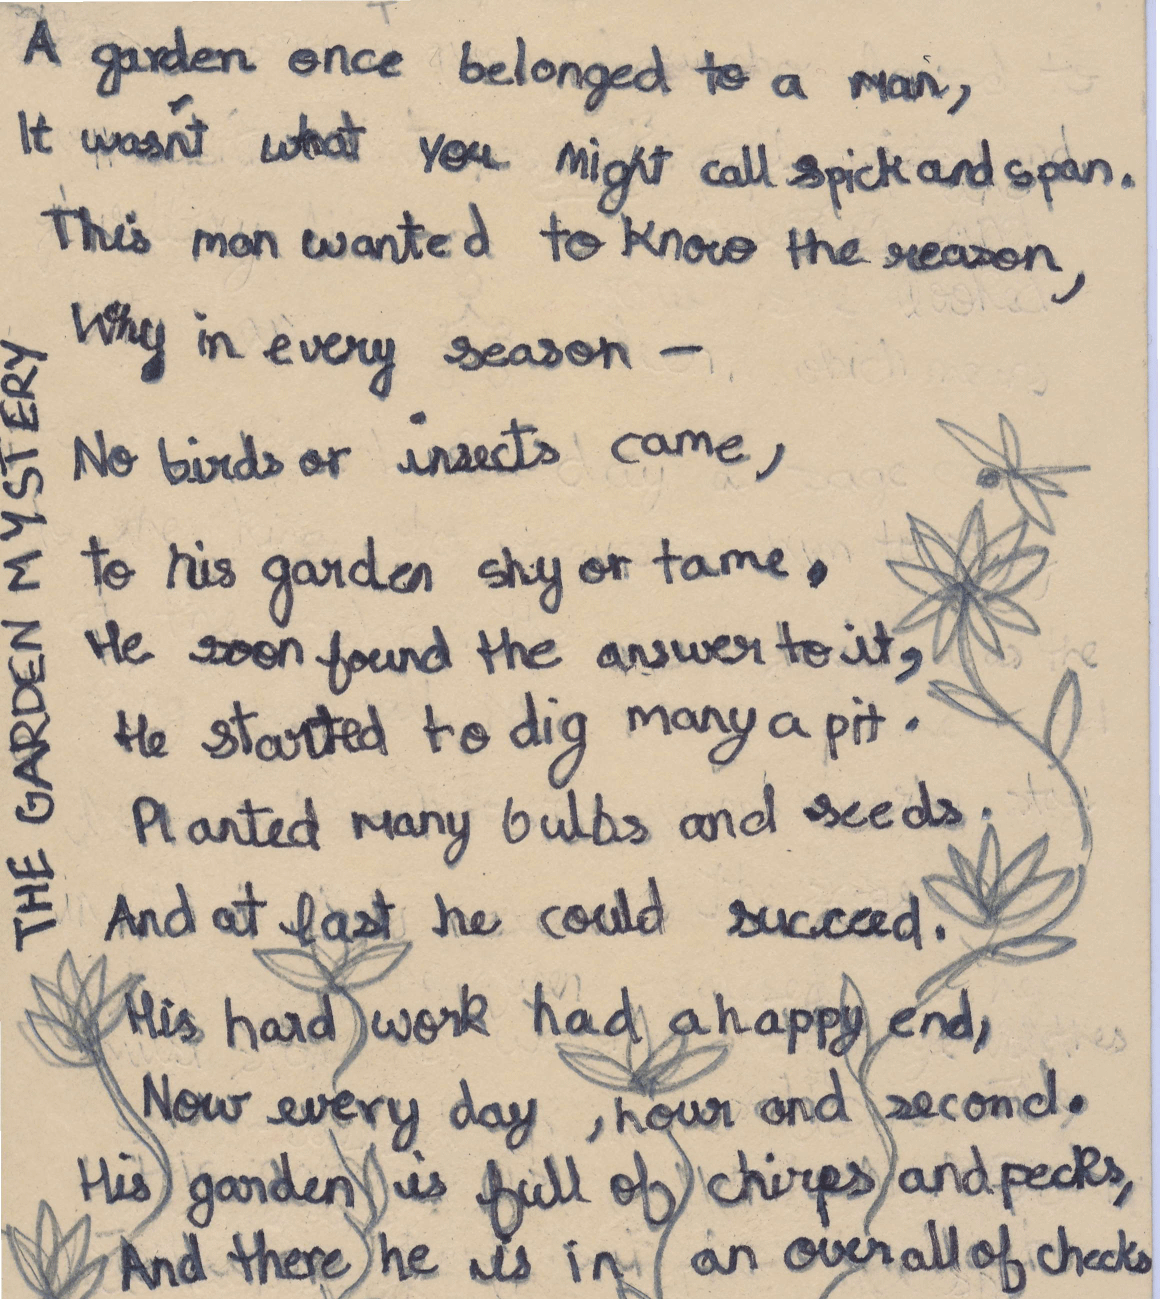 THE GARDEN MYSTERY
A garden once belonged to a man,
It wasn't what you might call spick and span.
This man wanted to know the reason,
Why in every season –
No birds or insects came,
to his garden shy or tame,
He soon found the answer to it,
He started to dig many a pit.
Planted many bulbs and seeds.
And at last he could succeed.
His hard work had a happy end,
Now every day, hour and second.
His garden is full of chirps and pecks,
And there he is in an overall of checks